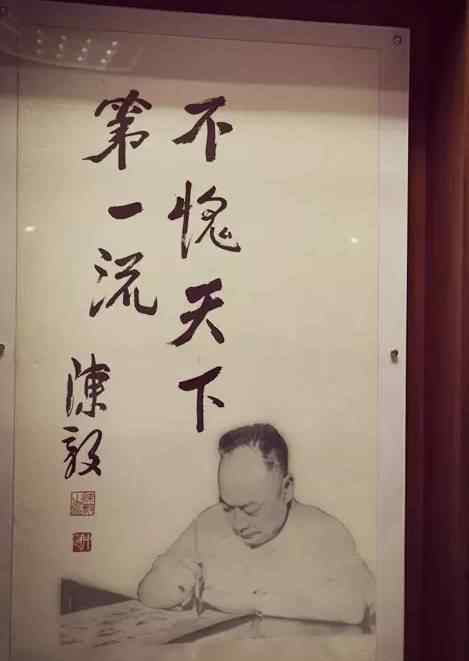 不愧天下
第一流
陳毅